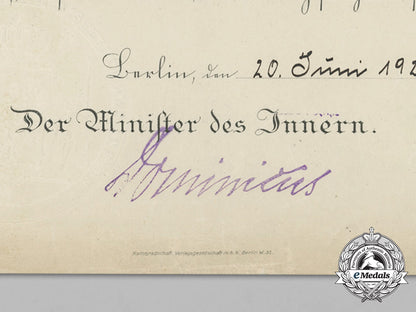 Berlin, den 20. Juni 192
Der Minister des Innern.
Dominicus
Kameradschaft, Verlagsgesellschaft m.b.H. Berlin W. 35.
eMedals